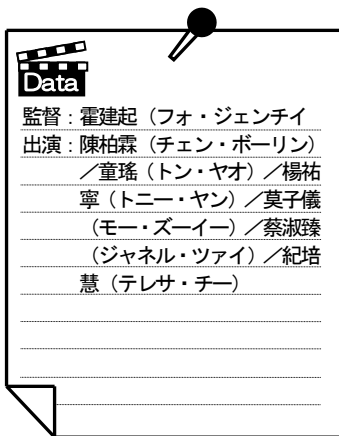 Data
監督：霍建起（フォ・ジェンチイ
出演：陳柏霖（チェン・ボーリン）
／童瑤（トン・ヤオ）／楊祐
寧（トニー・ヤン）／莫子儀
（モー・ズーイー）／蔡淑臻
（ジャネル・ツァイ）／紀培
慧（テレサ・チー）